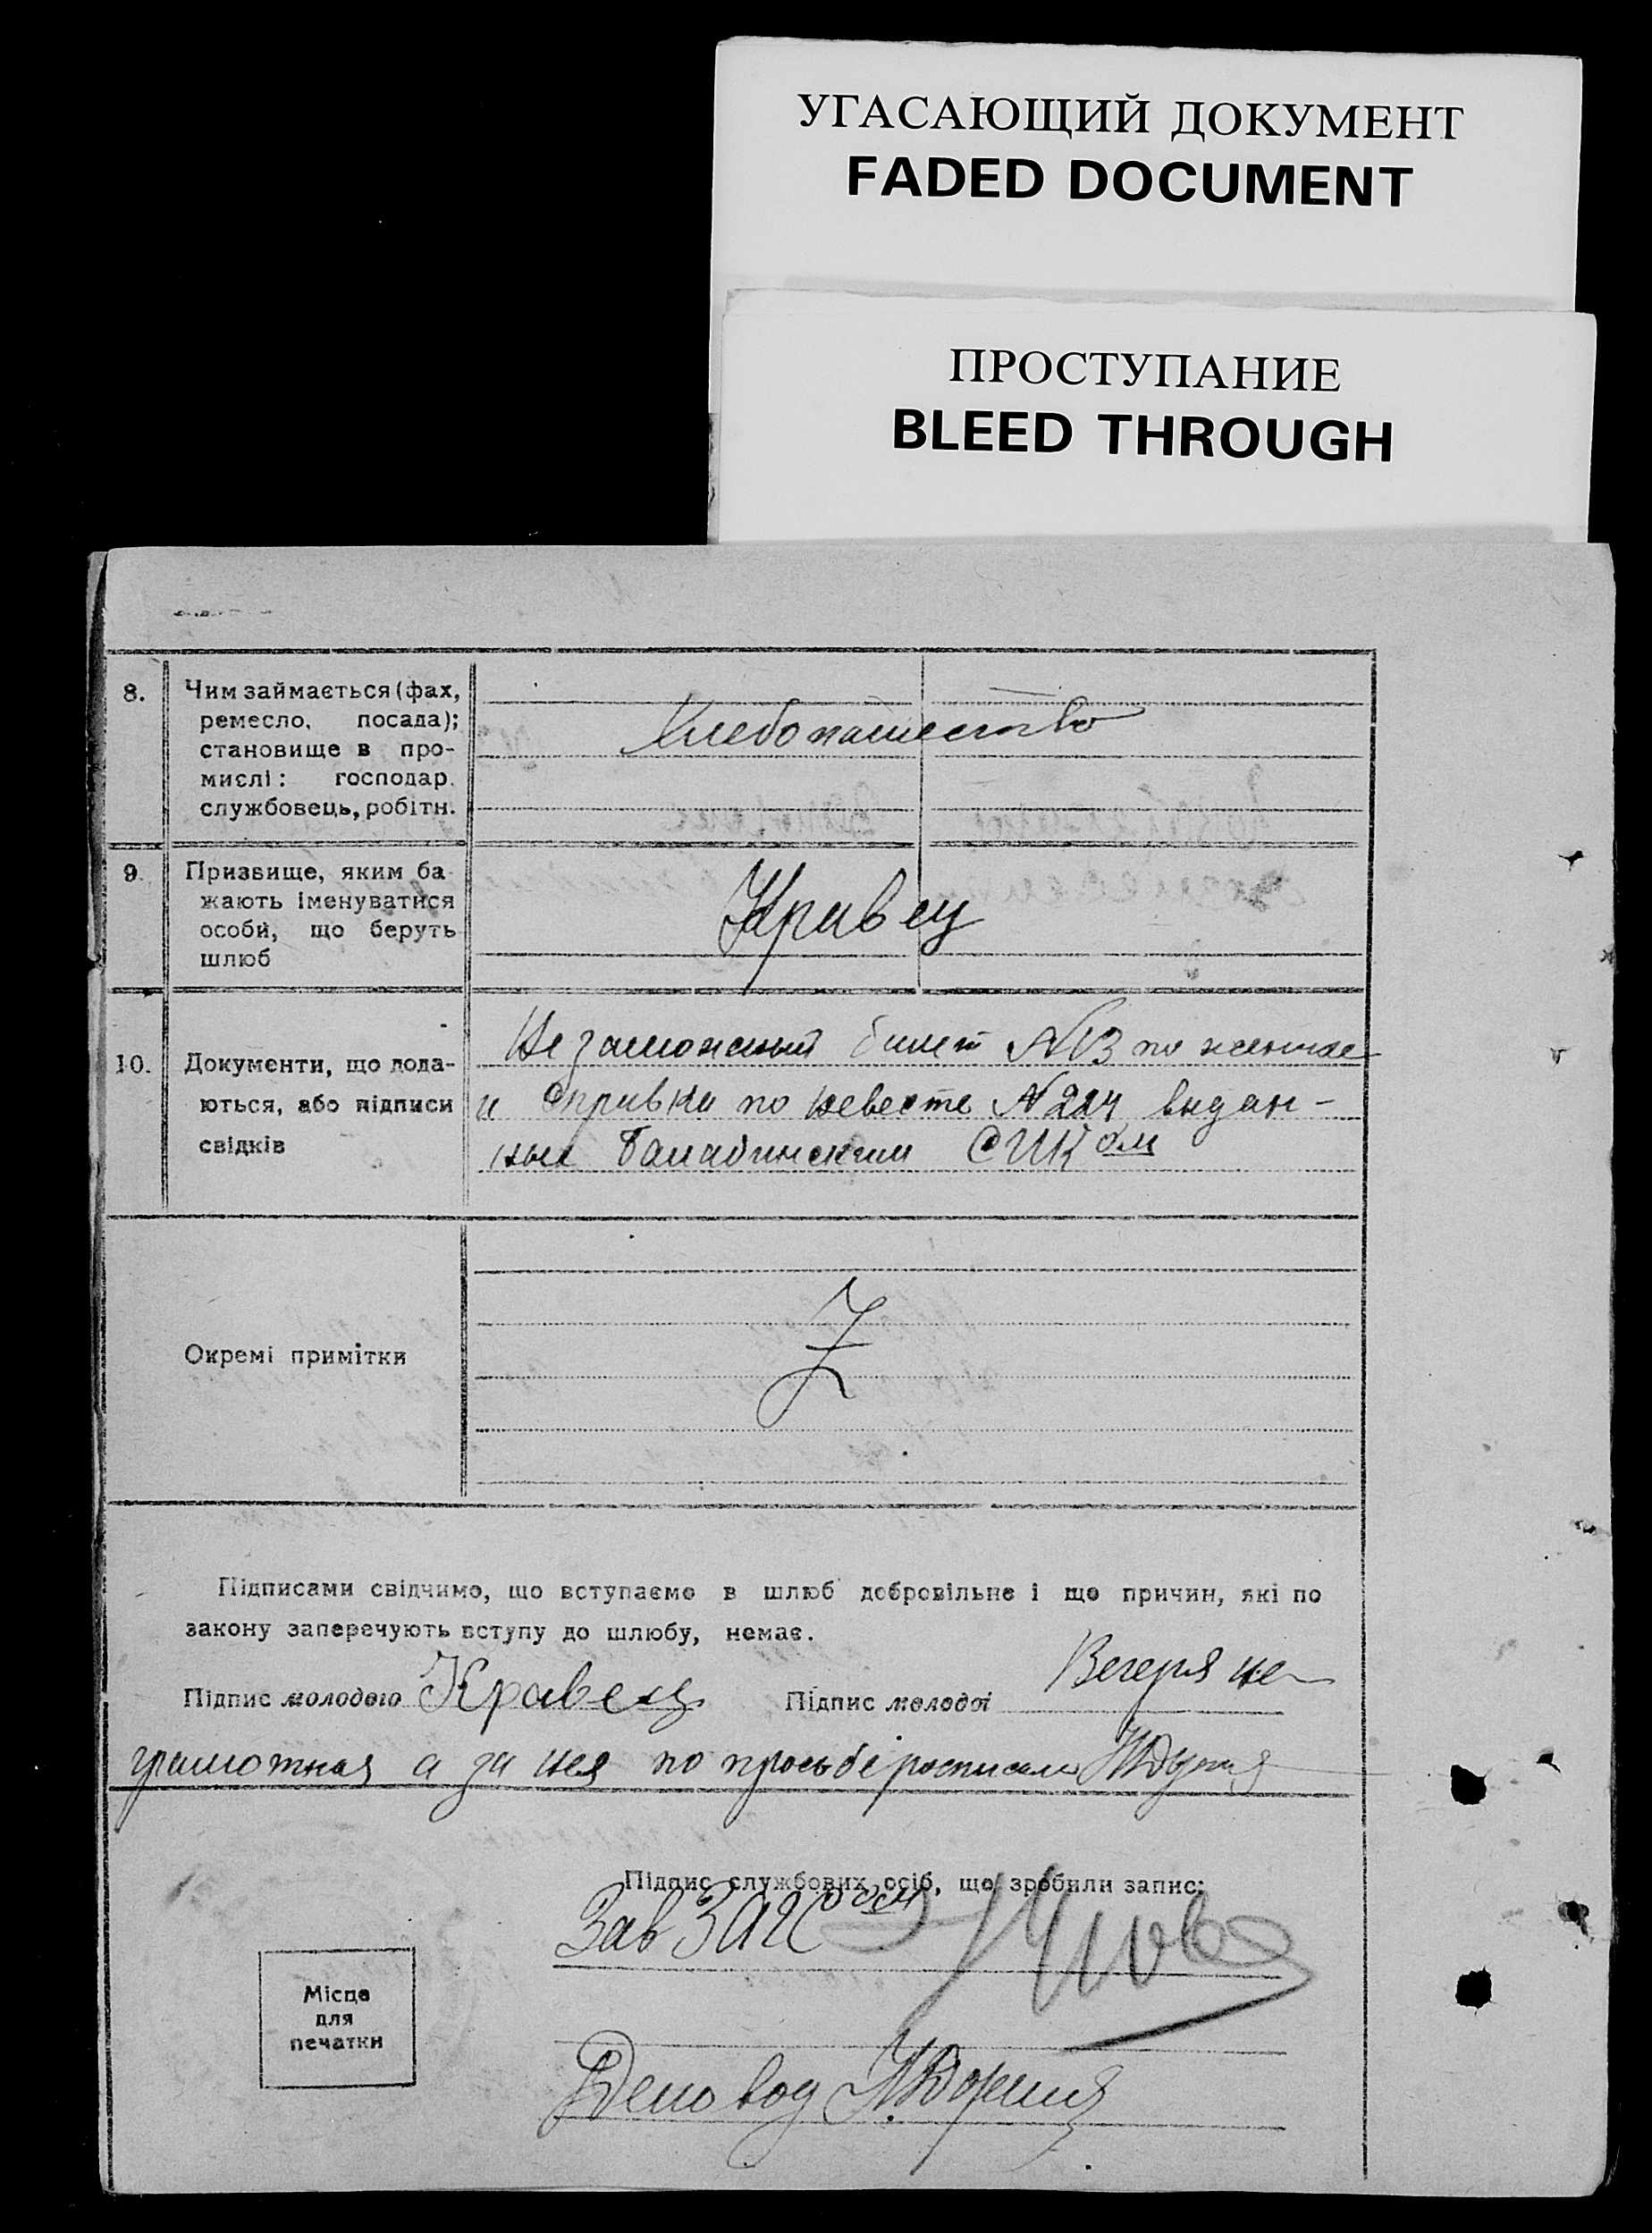 УГАСАЮЩИЙ ДОКУМЕНТ
FADED DOCUMENT
ПРОСТУПАНИЕ
BLEED THROUGH
8. Чим займається (фах,
ремесло, посада);
становище в про-
мислі: господар.
службовець, робітн.
Хлебопашество
9. Призвище, яким ба-
жають іменуватися
особи, що беруть
шлюб
Кравец
10. Документи, що пода-
ються, або підписи
свідків
Незаможный билет №13 по женихе
и справка по невесте №224 выдан-
ных Балабинским СИКом
Окремі примітки
Z
Підписами свідчимо, що вступаємо в шлюб добровільне і що причин, які по
закону заперечують вступу до шлюбу, немає.
Підпис молодого Кравец Підпис молодої Вечеря не
грамотная а за нея по просьбе росписалс
Підпис службових осіб, що зробили запис:
Зав ЗАГСом
Місце
для
печатки
Деловод